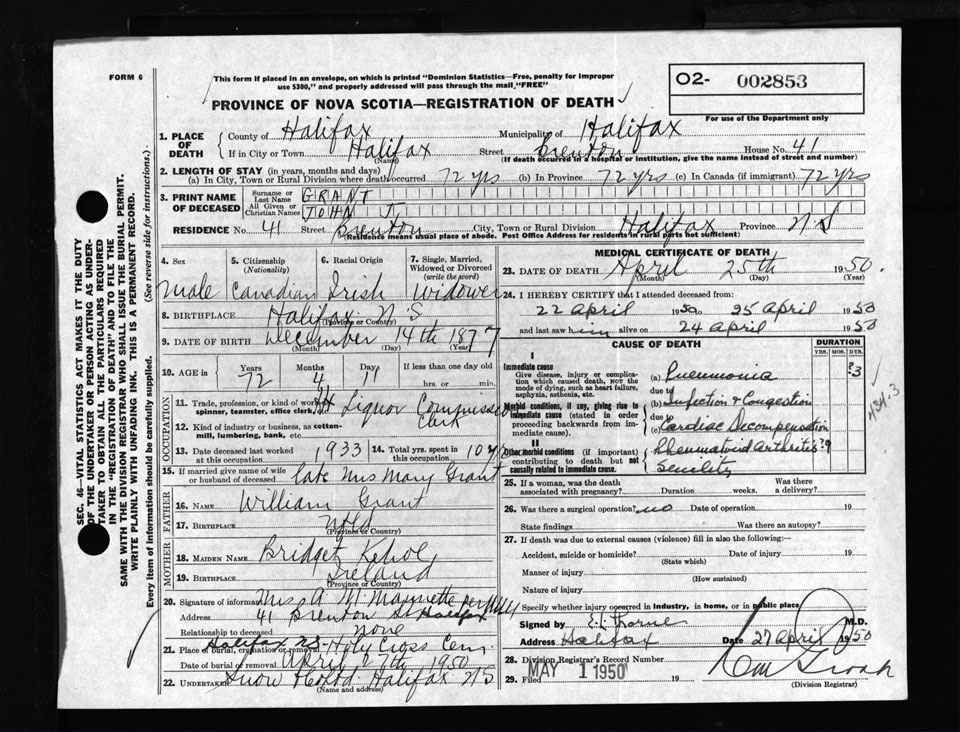 FORM 6
This form if placed in an envelope, on which is printed "Dominion Statistics—Free, penalty for improper
use $300," and properly addressed will pass through the mail "FREE"
O2- 002853
For use of the Department only
PROVINCE OF NOVA SCOTIA—REGISTRATION OF DEATH
1. PLACE OF DEATH County of Halifax Municipality of Halifax
If in City or Town Halifax Street Brenton House No. 41
(Name) (If death occurred in a hospital or institution, give the name instead of street and number)
2. LENGTH OF STAY (in years, months and days)
(a) In City, Town or Rural Division where death occurred 72 yrs (b) In Province 72 yrs (c) In Canada (if immigrant) 72 yrs
3. PRINT NAME OF DECEASED Surname or Last Name GRANT
All Given or Christian Names JOHN J.
RESIDENCE No. 41 Street Brenton City, Town or Rural Division Halifax Province N.S
(Residence means usual place of abode. Post Office Address for residents in rural parts not sufficient)
4. Sex 5. Citizenship (Nationality) 6. Racial Origin 7. Single, Married, Widowed or Divorced (write the word)
Male Canadian Irish Widower
8. BIRTHPLACE Halifax N.S
(Province or Country)
9. DATE OF BIRTH December 14th 1877
(Month) (Day) (Year)
10. AGE in Years Months Days If less than one day old
72 4 11 hrs. or min.
OCCUPATION
11. Trade, profession, or kind of work as spinner, teamster, office clerk, etc. Liquor Commission
Clerk
12. Kind of industry or business, as cotton-mill, lumbering, bank, etc.
13. Date deceased last worked at this occupation 1933 14. Total yrs. spent in this occupation 10 yrs
15. If married give name of wife or husband of deceased late Mrs Mary Grant
FATHER
16. NAME William Grant
17. BIRTHPLACE Nfld
(Province or Country)
MOTHER
18. MAIDEN NAME Bridget Kehoe
19. BIRTHPLACE Ireland
(Province or Country)
20. Signature of informant Mrs A M Mannette per
Address 41 Brenton St Halifax
Relationship to deceased none
21. Place of burial, cremation or removal Halifax N.S. Holy Cross Cem.
Date of burial or removal April 27th 1950
22. Undertaker Snow Halifax N S
(Name and address)
MEDICAL CERTIFICATE OF DEATH
23. DATE OF DEATH April 25th 1950.
(Month) (Day) (Year)
24. I HEREBY CERTIFY that I attended deceased from:
22 April 1950 to 25 April 1950
and last saw him alive on 24 April 1950
CAUSE OF DEATH DURATION
YRS. MOS. DYS.
I
Immediate cause
Give disease, injury or complication which caused death, NOT the mode of dying, such as heart failure, asphyxia, asthenia, etc.
(a) Pneumonia ?3
due to
Morbid conditions, if any, giving rise to immediate cause (stated in order proceeding backwards from immediate cause).
(b) Infection & Congestion
due to
(c) Cardiac Decompensation
II
Other morbid conditions (if important) contributing to death but not causally related to immediate cause.
Rheumatoid Arthritis ?9
Senility
25. If a woman, was the death associated with pregnancy? Duration weeks. Was there a delivery?
26. Was there a surgical operation? no Date of operation 19
State findings Was there an autopsy?
27. If death was due to external causes (violence) fill in also the following:—
Accident, suicide or homicide? Date of injury 19
(State which)
Manner of injury
(How sustained)
Nature of injury
Specify whether injury occurred in industry, in home, or in public place
Signed by E L Thorne M.D.
Address Halifax Date 27 April 1950
28. Division Registrar's Record Number
29. Filed MAY 1 1950 19
(Division Registrar)
SEC. 46—VITAL STATISTICS ACT MAKES IT THE DUTY
OF THE UNDERTAKER OR PERSON ACTING AS UNDER-
TAKER TO OBTAIN ALL THE PARTICULARS REQUIRED
IN THE "REGISTRATION OF DEATH" AND TO FILE THE
SAME WITH THE DIVISION REGISTRAR WHO SHALL ISSUE THE BURIAL PERMIT.
WRITE PLAINLY WITH UNFADING INK. THIS IS A PERMANENT RECORD.
Every item of information should be carefully supplied. (See reverse side for instructions.)